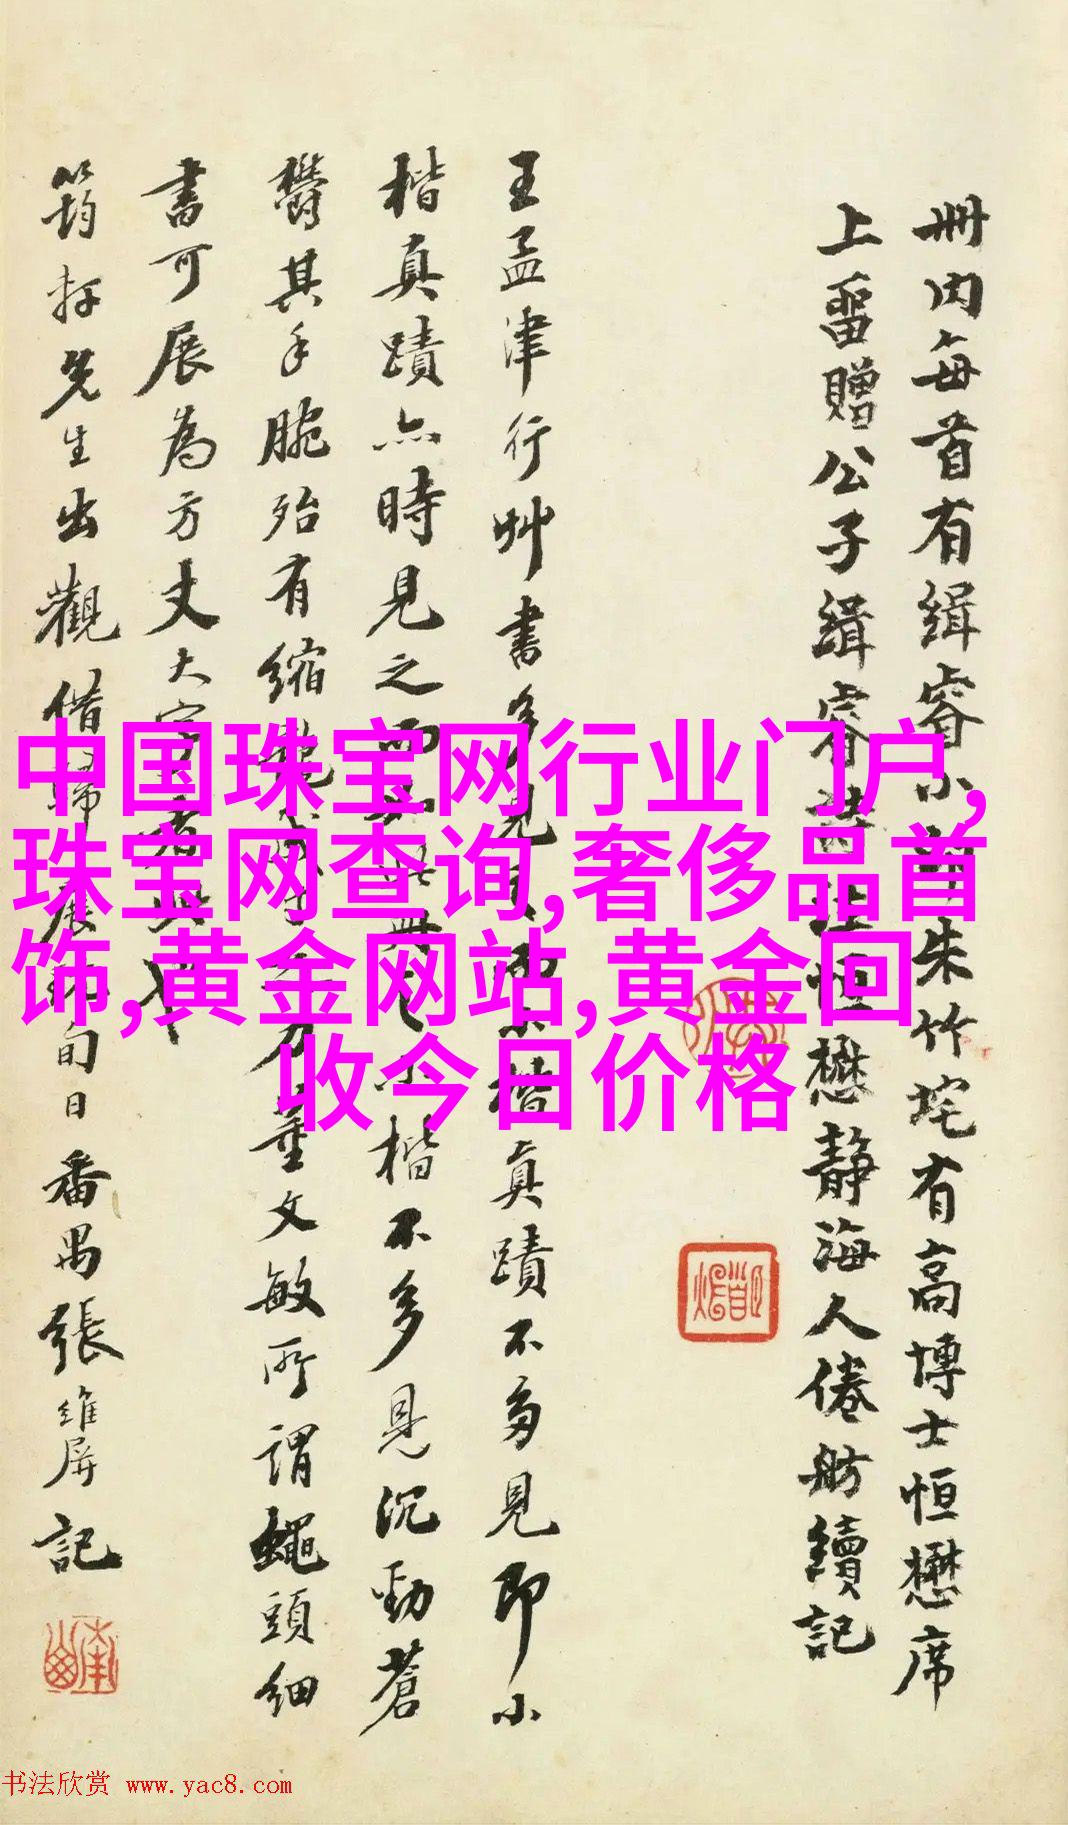 冊内每首有緝睿小
朱竹垞有高博士恒懋席
上留贈公子緝睿詩
恒懋靜海人倦舫續記
王孟津行艸書多見
小楷真蹟不多見即小
楷真蹟亦時見之而
小楷不多見沉勁蒼
鬱其手腕殆有縮
力量文敏所謂蠅頭細
書可展為方丈大字者
筠軒先生出觀借歸展
旬日番禺張維屏記
中国珠宝网行业门户,
珠宝网查询,奢侈品首
饰,黄金网站,黄金回
收今日价格
书法欣赏 www.yac8.com